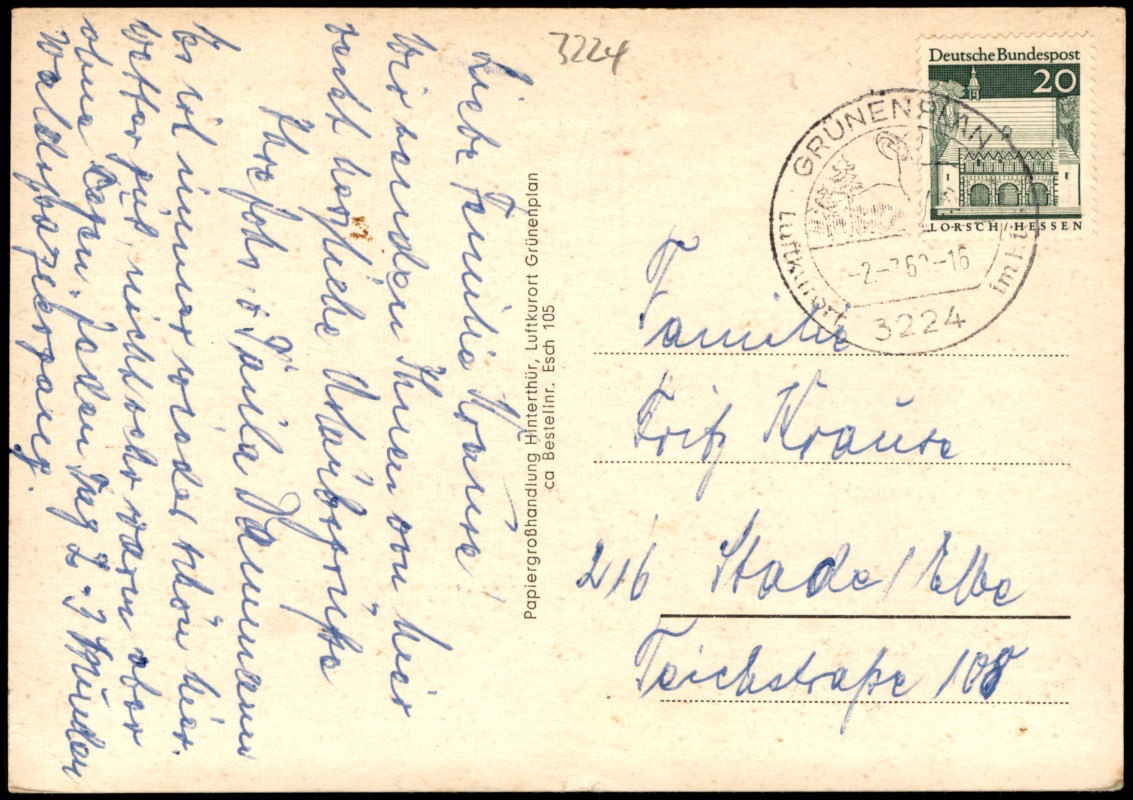 3224
Liebe Familie Krause!
Wir senden Ihnen von hier
recht herzliche Urlaubsgrüße
Ihre Joh. & Paula Dammann
Es ist immer wieder schön hier.
Wetter gut, nicht sehr warm aber
ohne Regen. Jeden Tag 2-3 Stunden
Waldspaziergang.
Papiergroßhandlung Hinterthür, Luftkurort Grünenplan
ca Bestellnr. Esch 105
Deutsche Bundespost
20
LORSCH/HESSEN
GRÜNENPLAN
Luftkurort im H
-2-7.6 -16
3224
Familie
Fritz Krause
216 Stade/Elbe
Teichstraße 108